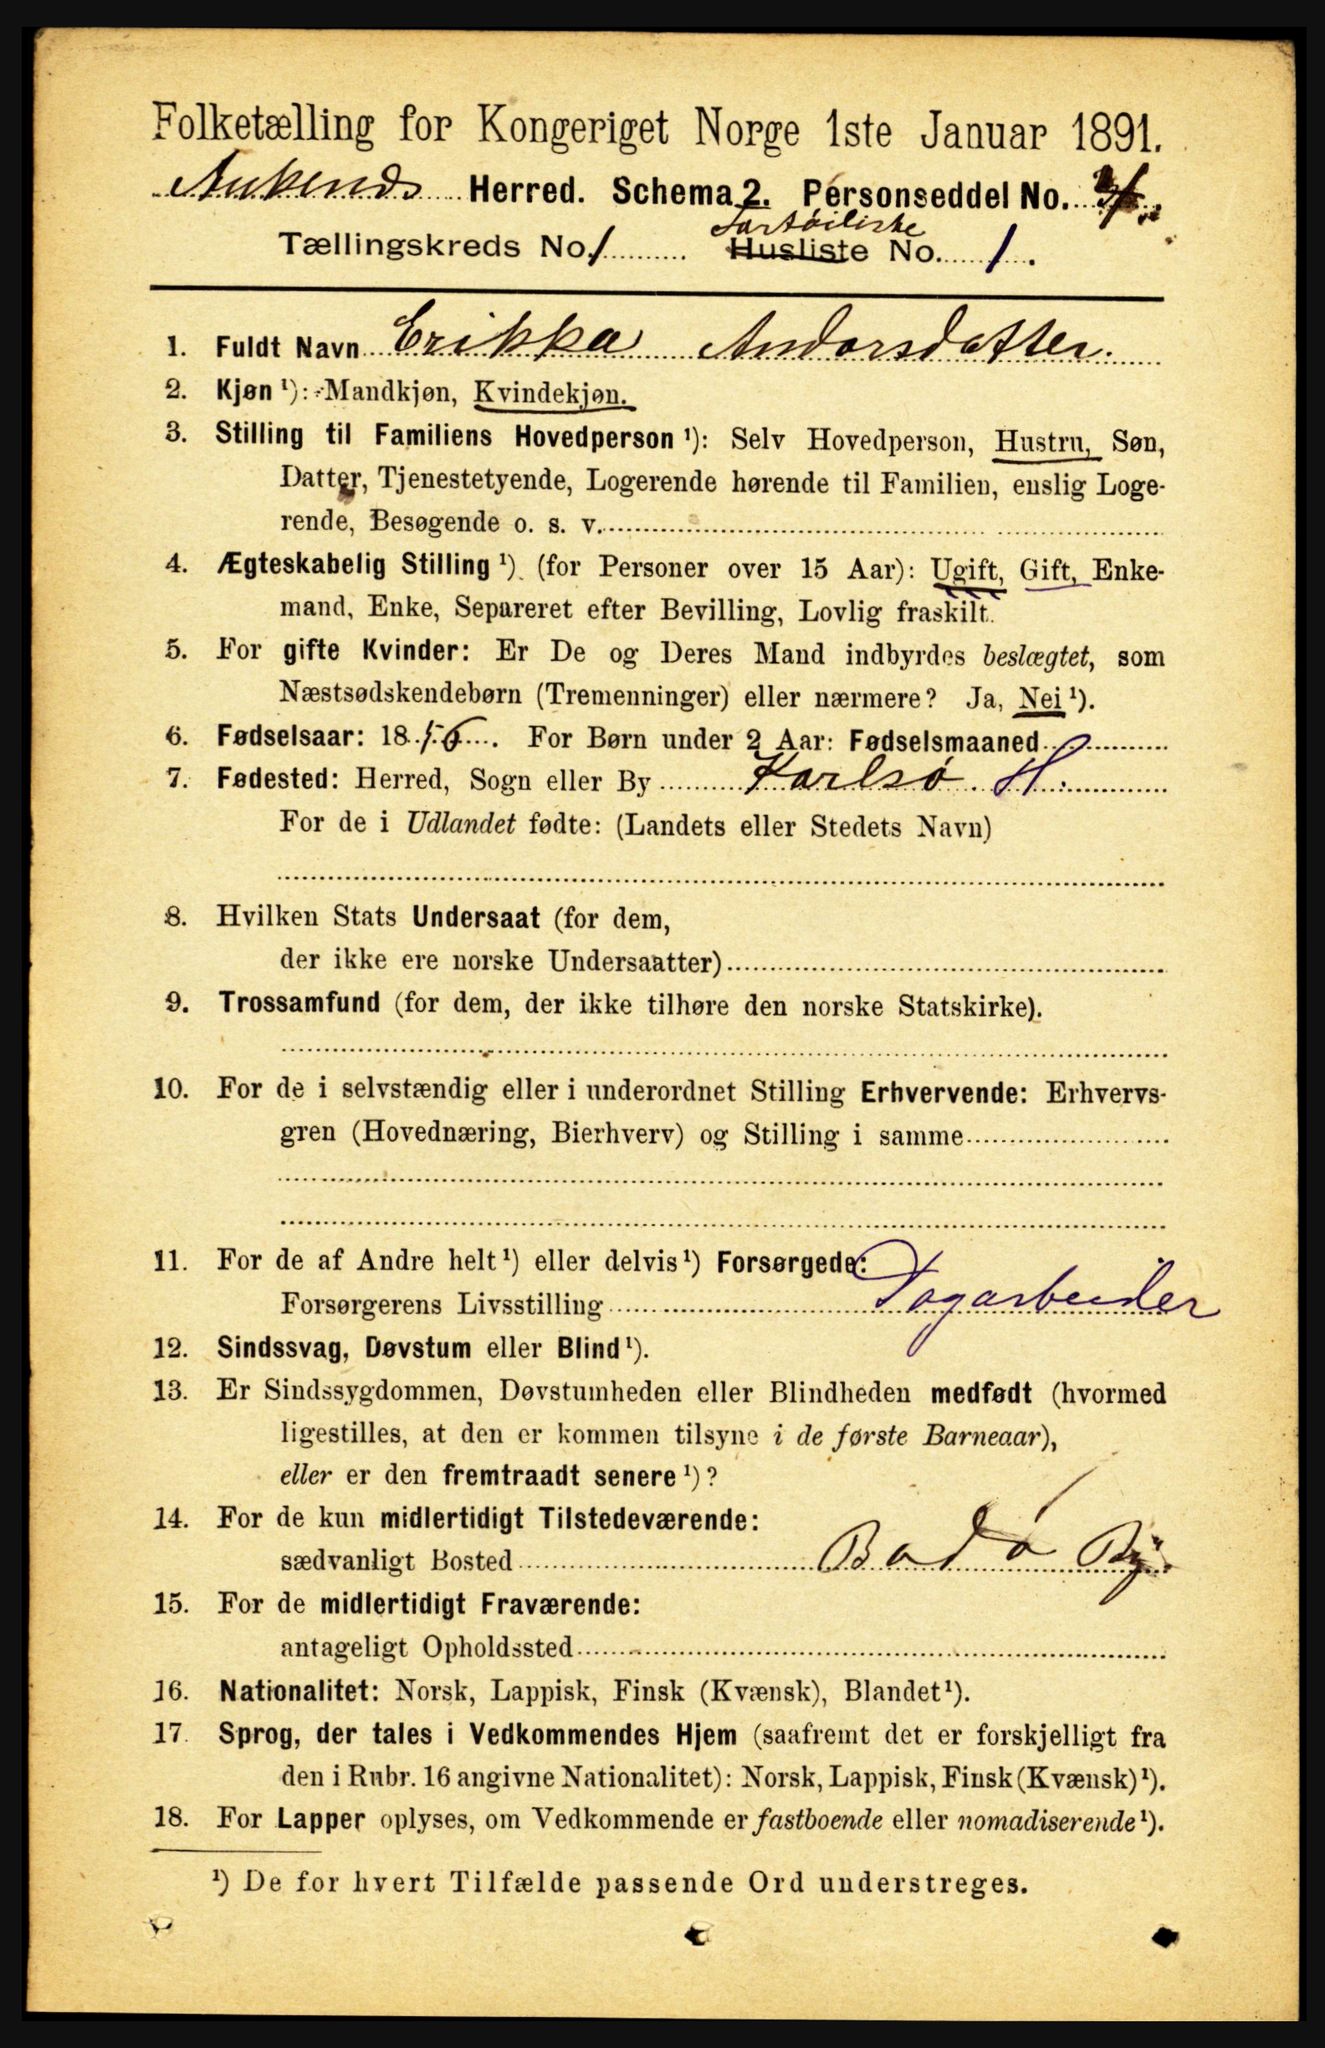 Folketælling for Kongeriget Norge 1ste Januar 1891.
Ankenes Herred. Schema 2. Personseddel No.
Fartøiliste
Tællingskreds No. 1 Husliste No. 1.
1. Fuldt Navn Erikka Andersdatter.
2. Kjøn ¹): Mandkjøn, Kvindekjøn.
3. Stilling til Familiens Hovedperson ¹): Selv Hovedperson, Hustru, Søn,
Datter, Tjenestetyende, Logerende hørende til Familien, enslig Loge-
rende, Besøgende o. s. v.
4. Ægteskabelig Stilling ¹) (for Personer over 15 Aar): Ugift, Gift, Enke-
mand, Enke, Separeret efter Bevilling, Lovlig fraskilt.
5. For gifte Kvinder: Er De og Deres Mand indbyrdes beslægtet, som
Næstsødskendebørn (Tremenninger) eller nærmere? Ja, Nei ¹).
6. Fødselsaar: 1856. For Børn under 2 Aar: Fødselsmaaned
7. Fødested: Herred, Sogn eller By Karlsø H.
For de i Udlandet fødte: (Landets eller Stedets Navn)
8. Hvilken Stats Undersaat (for dem,
der ikke ere norske Undersaatter)
9. Trossamfund (for dem, der ikke tilhøre den norske Statskirke).
10. For de i selvstændig eller i underordnet Stilling Erhvervende: Erhvervs-
gren (Hovednæring, Bierhverv) og Stilling i samme
11. For de af Andre helt ¹) eller delvis ¹) Forsørgede:
Forsørgerens Livsstilling Dagarbeider
12. Sindssvag, Døvstum eller Blind ¹).
13. Er Sindssygdommen, Døvstumheden eller Blindheden medfødt (hvormed
ligestilles, at den er kommen tilsyne i de første Barneaar),
eller er den fremtraadt senere ¹)?
14. For de kun midlertidigt Tilstedeværende:
sædvanligt Bosted Bodø By.
15. For de midlertidigt Fraværende:
antageligt Opholdssted
16. Nationalitet: Norsk, Lappisk, Finsk (Kvænsk), Blandet ¹).
17. Sprog, der tales i Vedkommendes Hjem (saafremt det er forskjelligt fra
den i Rubr. 16 angivne Nationalitet): Norsk, Lappisk, Finsk (Kvænsk) ¹).
18. For Lapper oplyses, om Vedkommende er fastboende eller nomadiserende ¹).
¹) De for hvert Tilfælde passende Ord understreges.